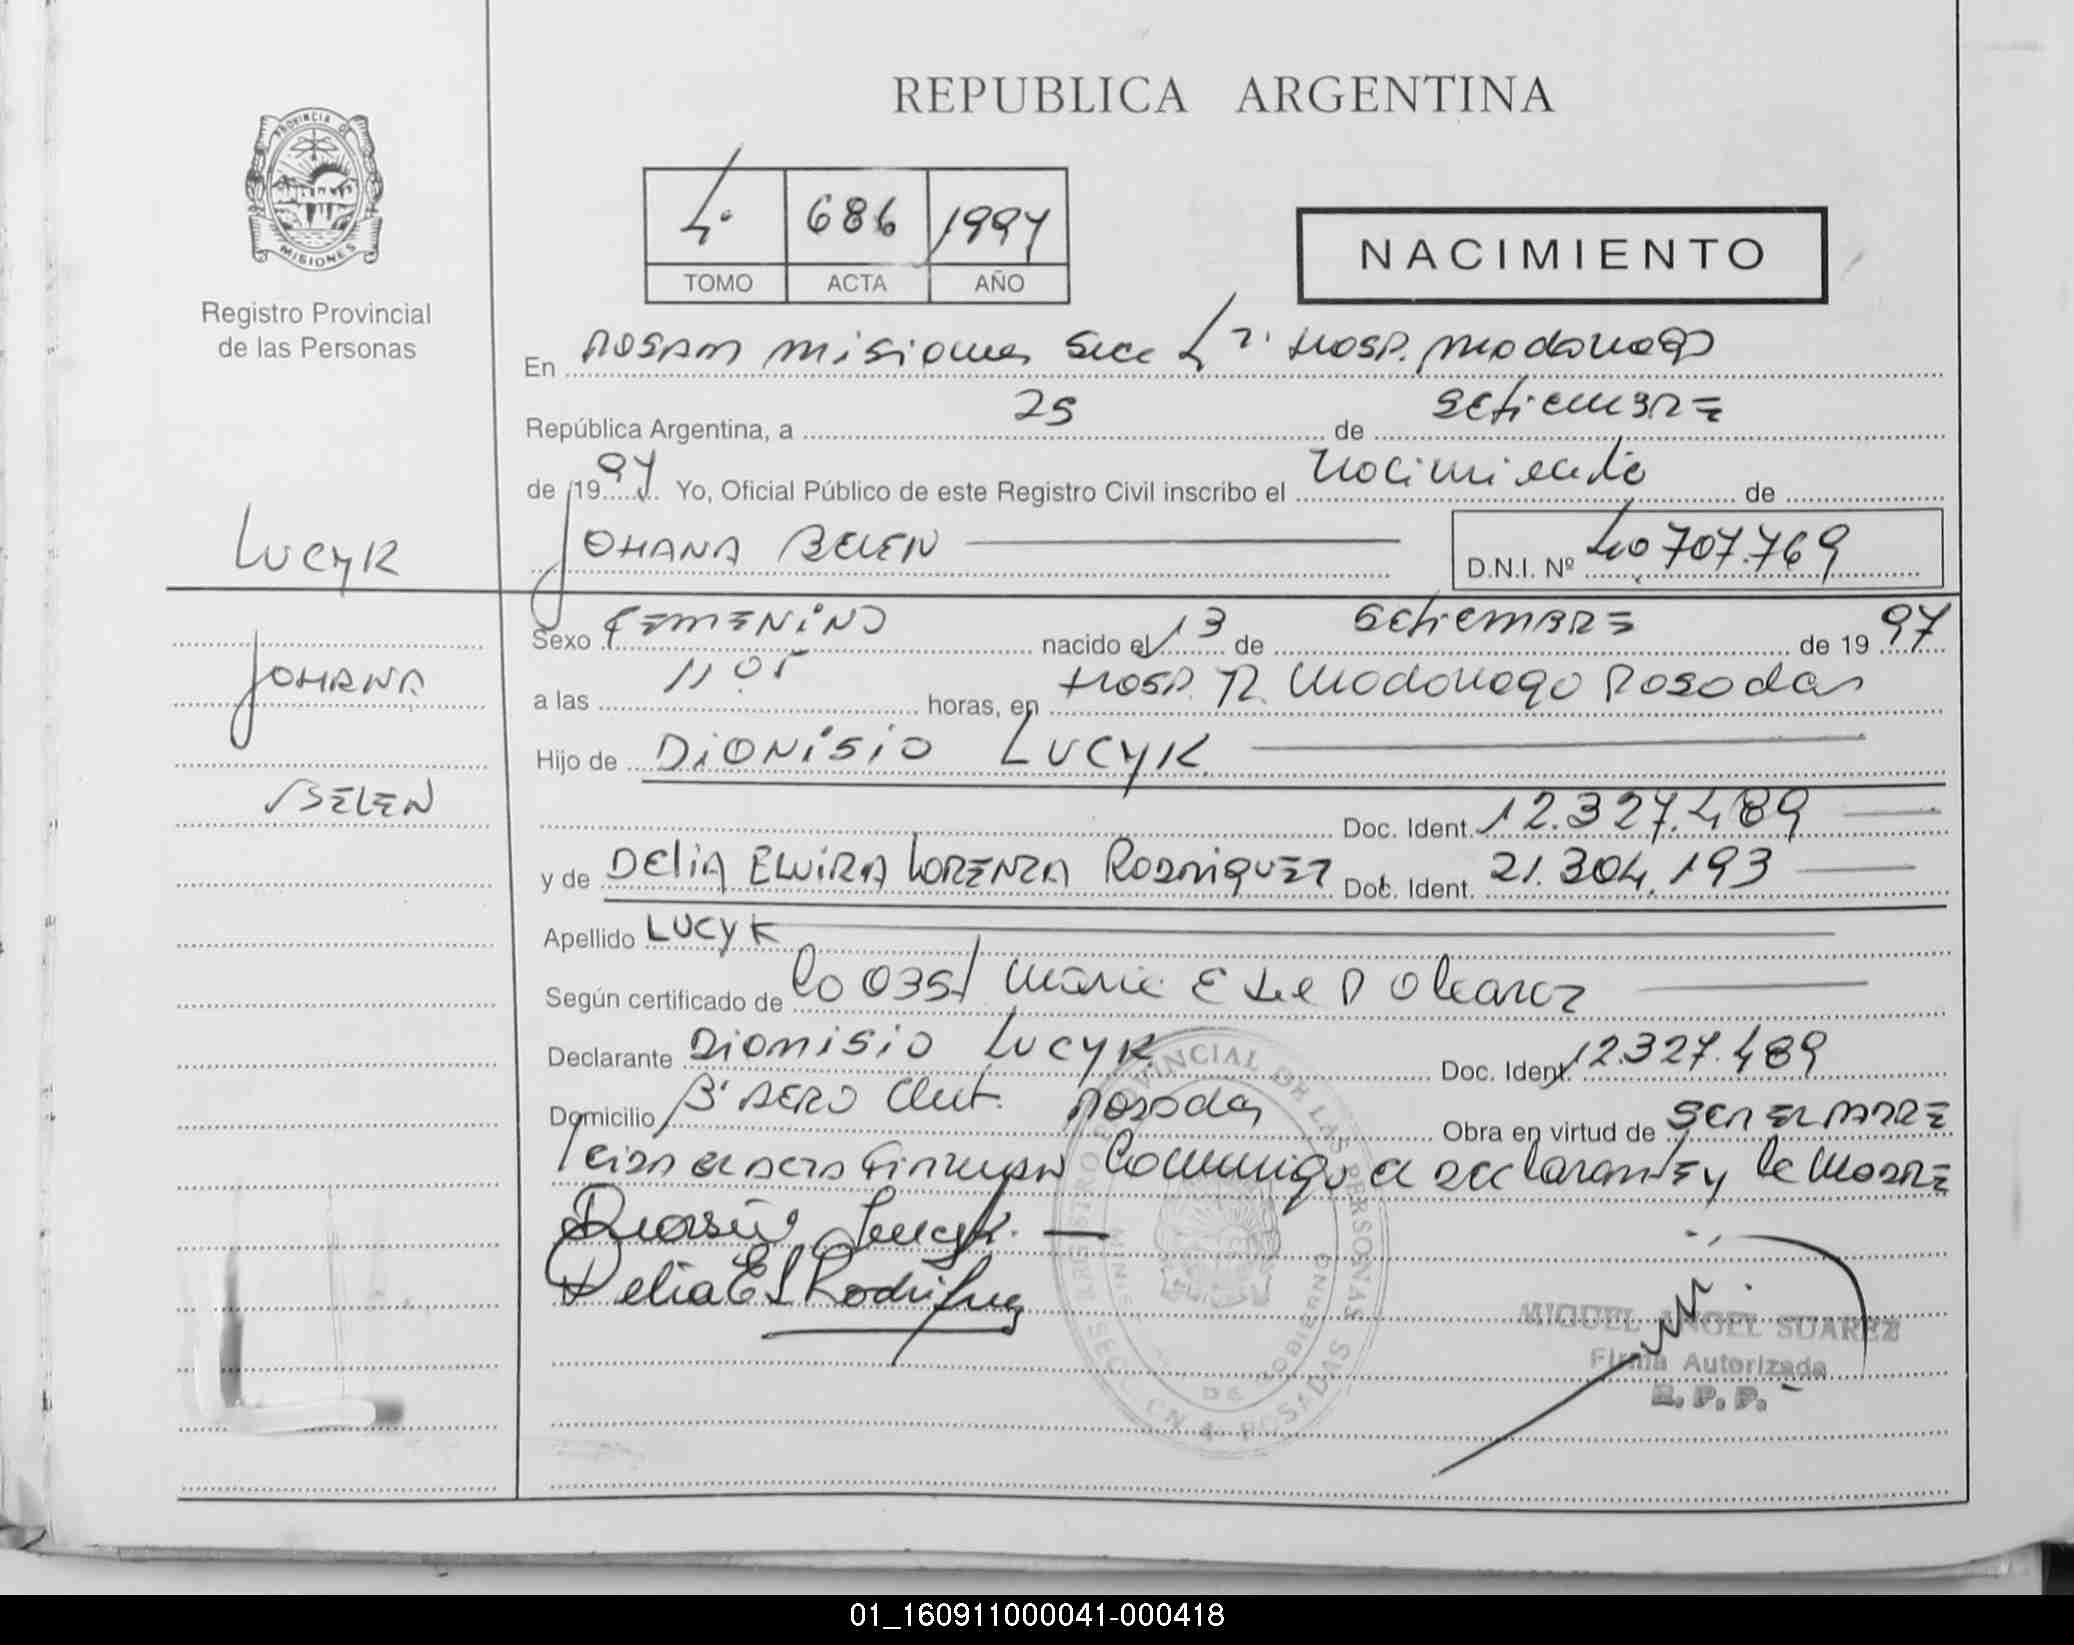 REPUBLICA ARGENTINA
PROVINCIA DE
MISIONES
Registro Provincial
de las Personas
4º 686 1997
TOMO ACTA AÑO
NACIMIENTO
En Posadas Misiones Secc 4ª Hosp. Madariaga
República Argentina, a 25 de Setiembre
de 1997 Yo, Oficial Público de este Registro Civil inscribo el Nacimiento de
JOHANA BELEN
D.N.I. Nº 40 707.769
LUCYK
JOHANA
BELEN
Sexo FEMENINO nacido el 13 de Setiembre de 1997
a las 11 05 horas, en Hosp. R. Madariaga Posadas
Hijo de DIONISIO LUCYK
Doc. Ident. 12.327.489
y de DELIA ELVIRA LORENZA RODRIGUEZ Doc. Ident. 21.304.193
Apellido LUCYK
Según certificado de
Declarante DIONISIO LUCYK Doc. Ident. 12.327.489
Domicilio Bº AERO Club. Posadas Obra en virtud de SER EL PADRE
Leida el acta firman Conmigo el declarante y la Madre
Dionisio Lucyk.
Delia E L Rodriguez
REGISTRO PROVINCIAL DE LAS PERSONAS
MIGUEL ANGEL SUAREZ
Firma Autorizada
R. P. P.
01_160911000041-000418